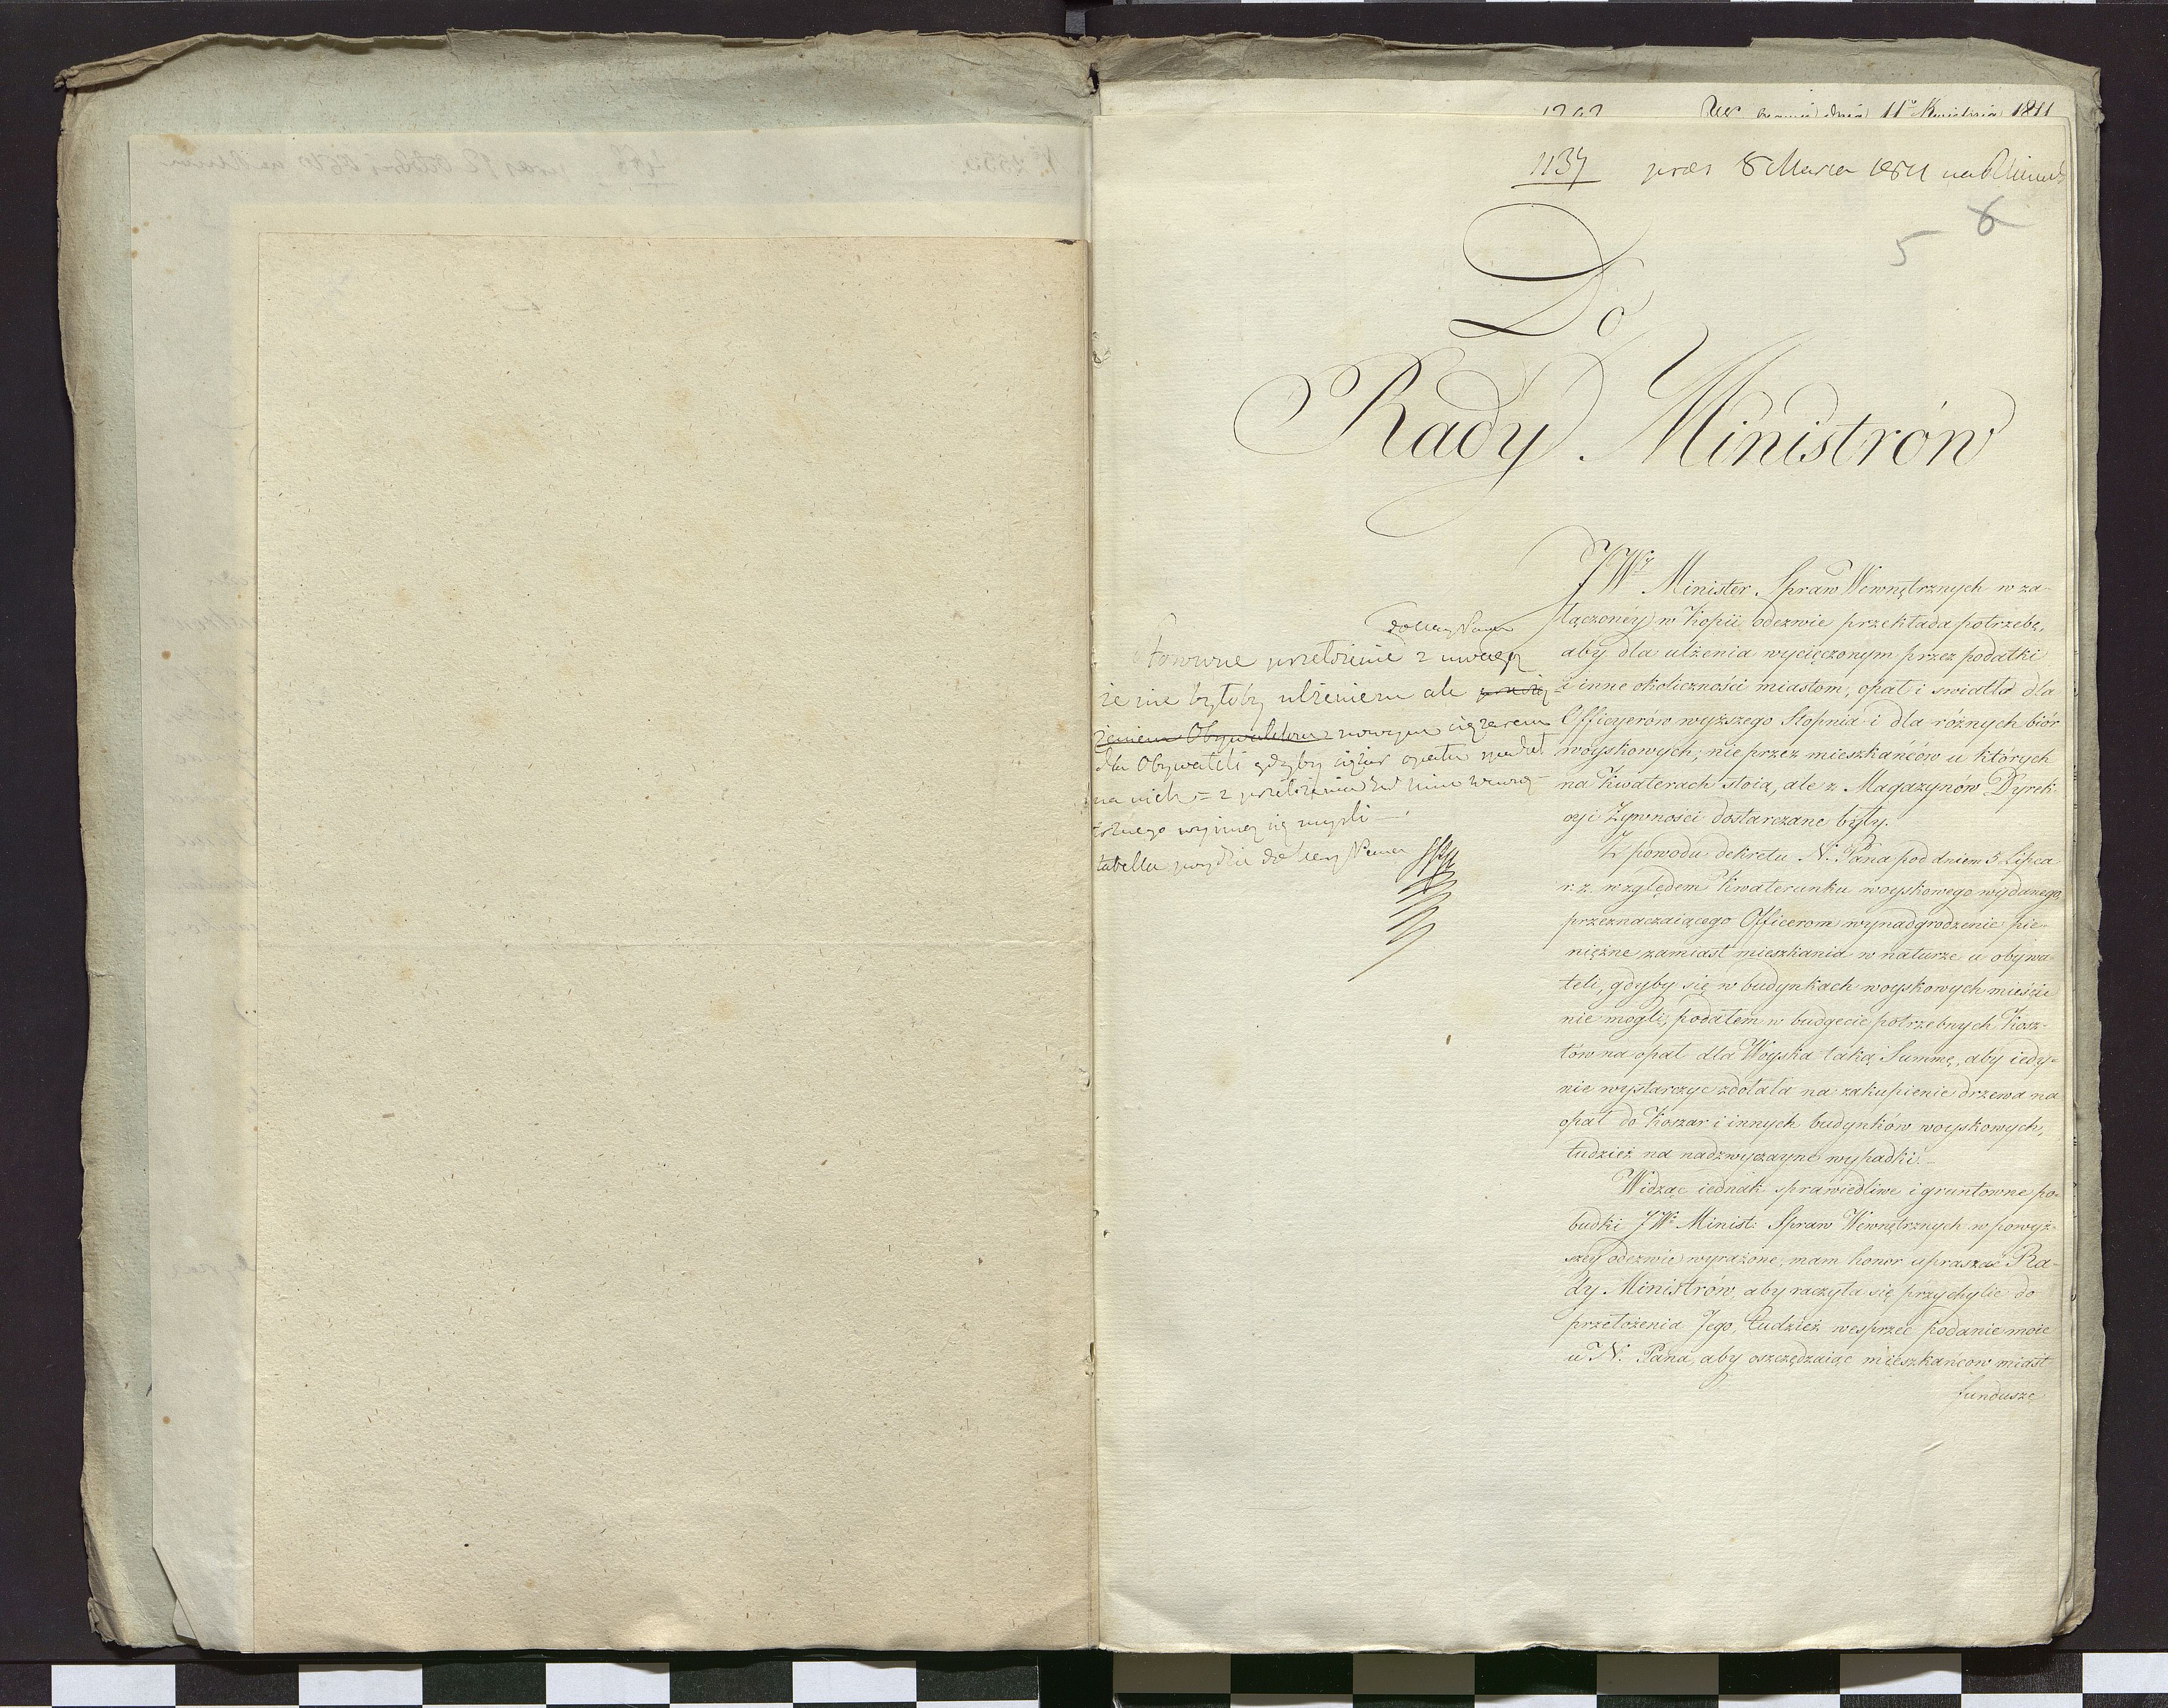 dnia 11º Kwietnia 1811
1137 praes 8 Marca 1811
5 6
Do
Rady Ministrów
JWy Minister Spraw Wewnętrznych w za-
łączoney w Kopii odezwie przekłada potrzebę,
aby dla ulżenia wycięczonym przez podatki
i inne okoliczności miastom, opał i swiatło dla
Officyerów wyższego Stopnia i dla różnych biór
woyskowych, nie przez mieszkańców u których
na Kwaterach stoią, ale z Magazynów Dyrek-
cyi Żywności dostarczane były.
Z powodu dekretu N. Pana pod dniem 5 Lipca
r. z. względem Kwaterunku woyskowego wydanego,
przeznaczaiącego Officerom wynadgrodzenie pie-
niężne zamiast mieszkania w naturze u obywa-
teli, gdyby się w budynkach woyskowych mieścić
nie mogli, podałem w budgecie potrzebnych Kosz-
tów na opał dla Woyska taką Summę, aby iedy-
nie wystarczyc zdołała na zakupienie drzewa na
opał do Koszar i innych budynków woyskowych,
tudzież na nadzwyczayne wypadki.
Widząc iednak sprawiedliwe i gruntowne po-
budki JW. Minist: Spraw Wewnętrznych w powyż-
szey odezwie wyrażone, mam honor upraszać Ra-
dy Ministrów, aby raczyła się przychylic do
przełożenia Jego, tudzież wesprzec podanie moie
u N. Pana, aby oszczędzaiąc mieszkańcow miast
fundusze
do Ley Pana
przełożenie z uwagą
że nie byłoby ulżeniem ale
Obywatelom nowym ciężarem
dla Obywateli gdyby ciężar opału spadał
na nich = z przełożenia
trznego wyimą się mysli
tabella do Ley Pana